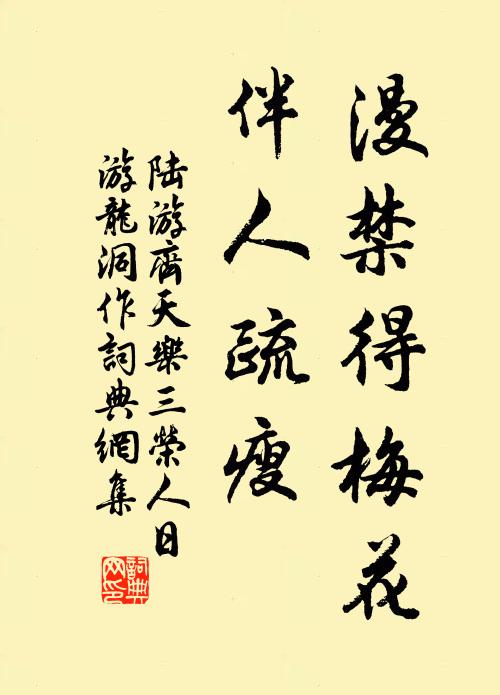 漫禁得梅花
伴人疏瘦
陆游齊天樂三榮人日
游龍洞作詞典網集
詞典网印